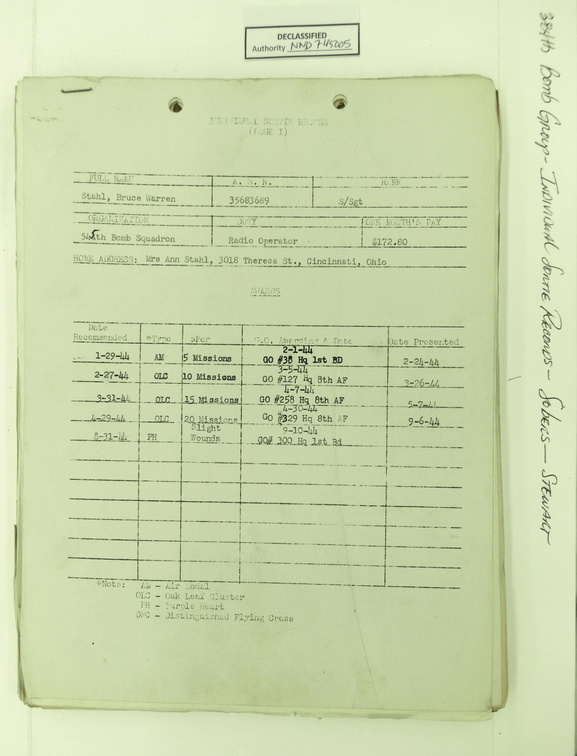 DECLASSIFIED
Authority NND 745005
384th Bomb Group - Individual Sortie Records - Sobers - Stewart
INDIVIDUAL SORTIE RECORD
(PAGE I)
FULL NAME A. S. N. RANK
Stahl, Bruce Warren 35683689 S/Sgt
ORGANIZATION DUTY ONE MONTH'S PAY
545th Bomb Squadron Radio Operator $172.80
HOME ADDRESS: Mrs Ann Stahl, 3018 Theresa St., Cincinnati, Ohio
AWARDS
Date
Recommended *Type *For G.O. Awarding & Date Date Presented
2-1-44
1-29-44 AM 5 Missions GO #38 Hq 1st BD 2-24-44
3-5-44
2-27-44 OLC 10 Missions GO #127 Hq 8th AF 3-26-44
4-7-44
3-31-44 OLC 15 Missions GO #258 Hq 8th AF 5-7-44
4-30-44
4-29-44 OLC 20 Missions GO #329 Hq 8th AF 9-6-44
Slight 9-10-44
8-31-44 PH Wounds GO# 300 Hq 1st Bd
*Note: AM - Air Medal
OLC - Oak Leaf Cluster
PH - Purple Heart
DFC - Distinguished Flying Cross